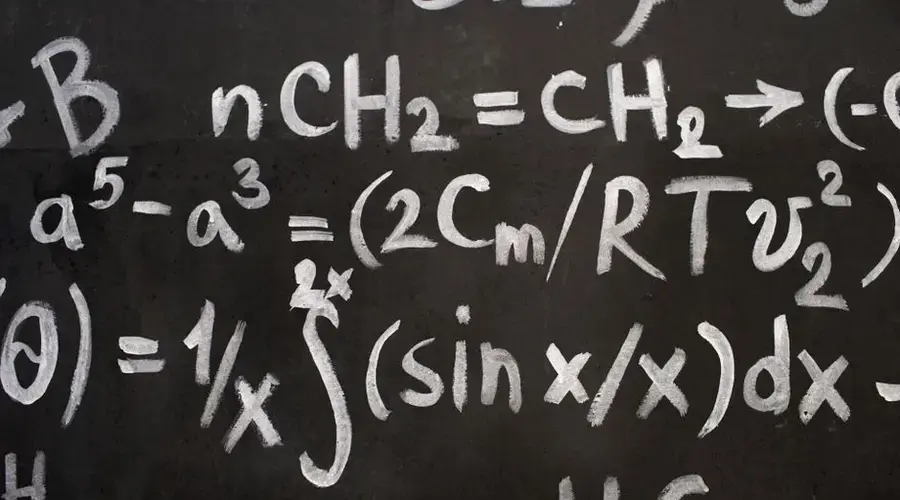 B nCH₂=CH₂→(-
a⁵-a³=(2Cm/RTv₂²)
(θ)=1/x∫²ˣ(sin x/x)dx-
H